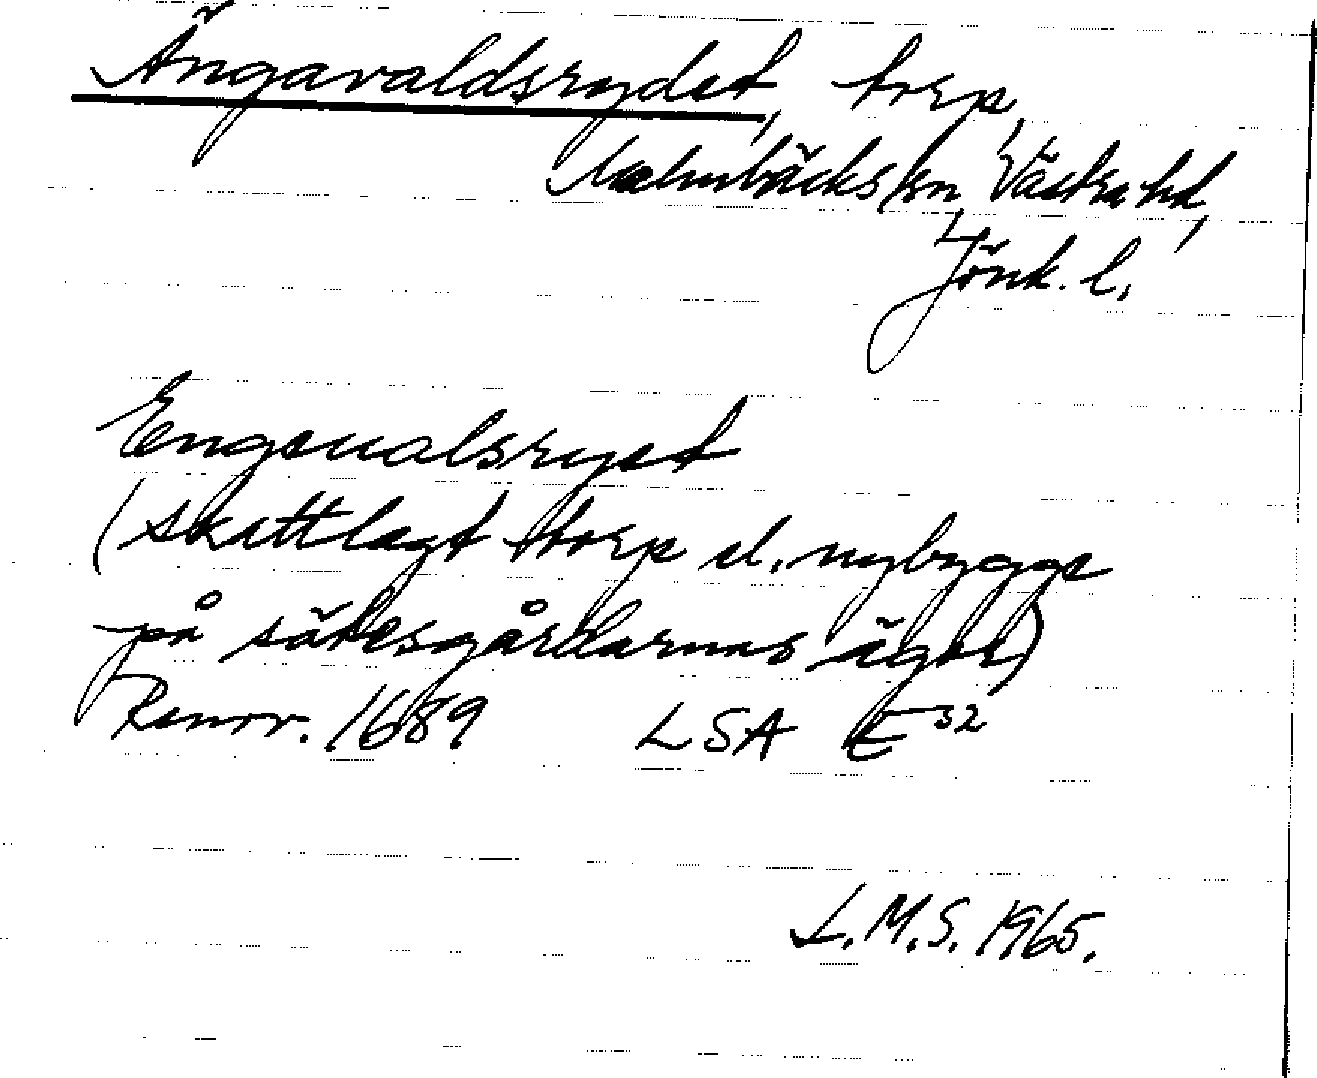 Ängavaldsrydet, torp,
Malmbäcks sn, Västra hd,
Jönk. l.
Engeualsryet
(skattlagt torp el. nybygge
på sätesgårdarnas ägor)
Renov. 1689 LSA E³²
L.M.S. 1965.